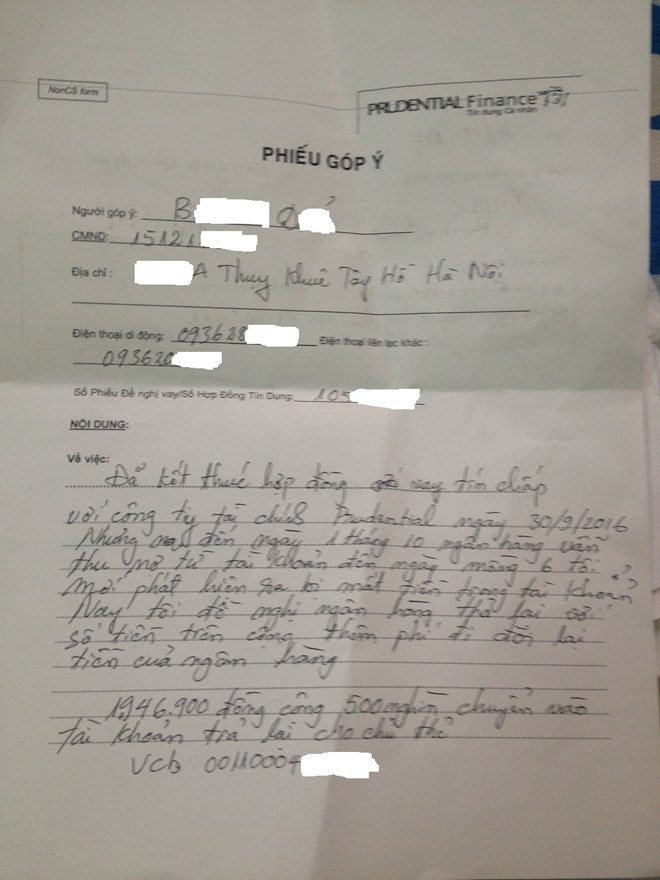 NonCS form
PRUDENTIAL Finance
Tín dụng Cá nhân
PHIẾU GÓP Ý
Người góp ý: B
CMND: 15121
Địa chỉ : A Thụy Khuê Tây Hồ Hà Nội
Điện thoại di động: 093628 Điện thoại liên lạc khác :
093620
Số Phiếu Đề nghị vay/Số Hợp Đồng Tín Dụng: 105
NỘI DUNG:
Về việc:
Đã kết thúc hợp đồng vay tín chấp
với công ty tài chính Prudential ngày 30/9/2016
Nhưng đến ngày 1 tháng 10 ngân hàng vẫn
thu nợ từ tài khoản đến ngày mồng 6 tôi
mới phát hiện ra bị mất tiền trong tài khoản
Nay tôi đề nghị ngân hàng trả lại
số tiền trên cộng thêm phí đi đòi lại
tiền của ngân hàng
1,946.900 đồng cộng 500 nghìn chuyển vào
tài khoản trả lại cho chủ thẻ
Vcb 00110004